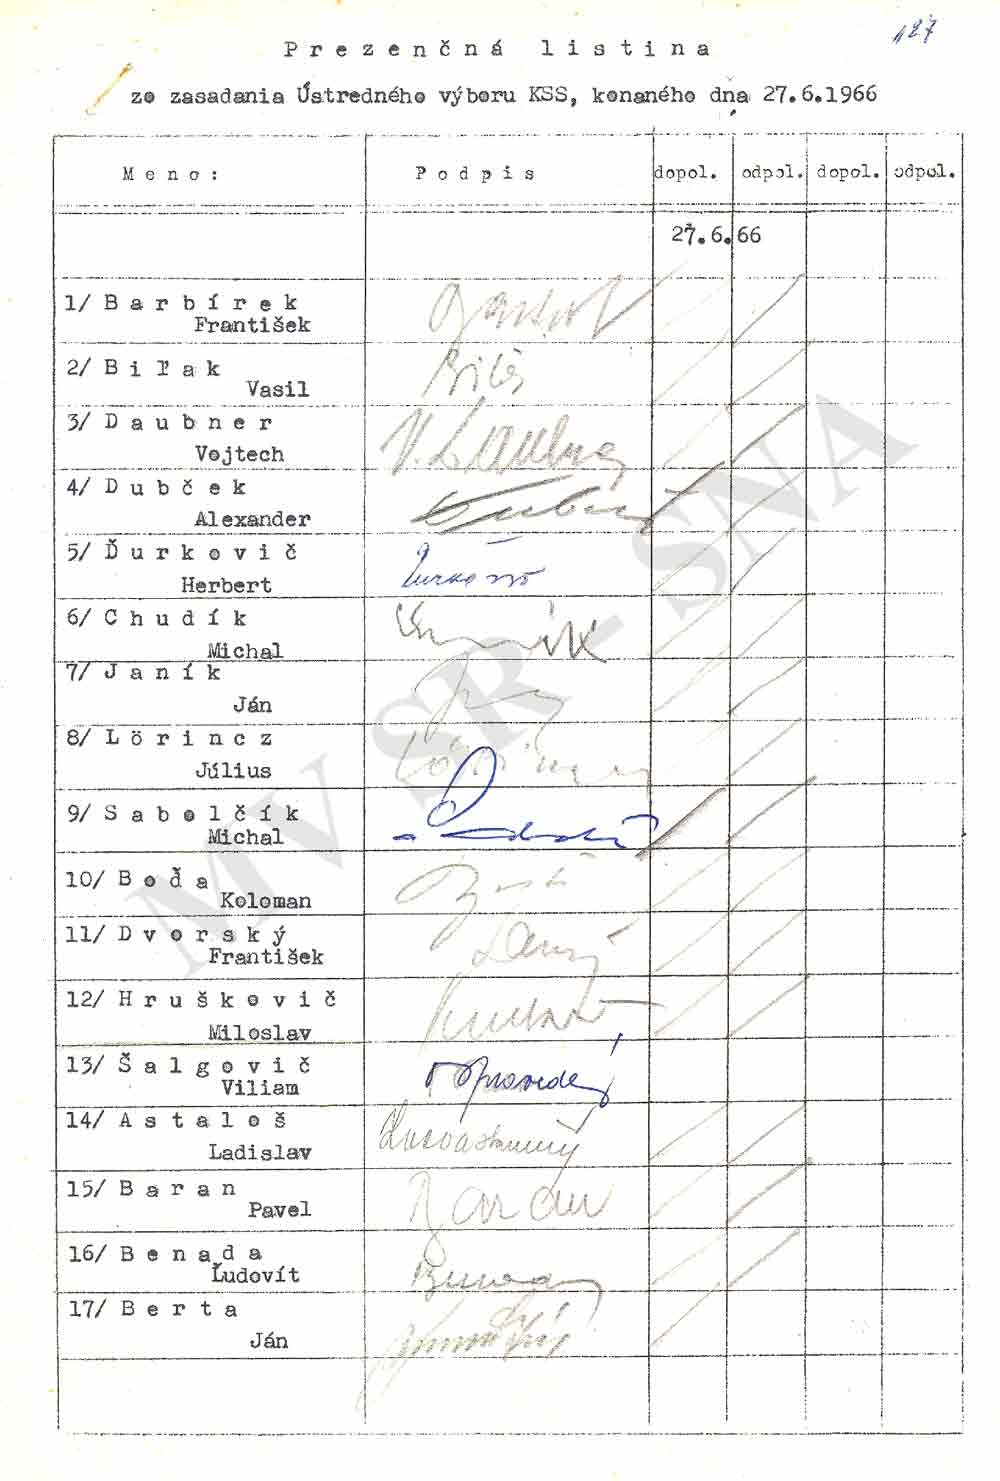 127
Prezenčná listina
zo zasadania Ústredného výboru KSS, konaného dňa 27.6.1966
Meno: Podpis dopol. odpol. dopol. odpol.
27.6.66
1/ Barbírek
František
2/ Biľak
Vasil
3/ Daubner
Vojtech V. Daubner
4/ Dubček
Alexander
5/ Ďurkovič
Herbert
6/ Chudík
Michal
7/ Janík
Ján
8/ Lörincz
Július
9/ Sabolčík
Michal
10/ Boďa
Koloman
11/ Dvorský
František
12/ Hruškovič
Miloslav
13/ Šalgovič
Viliam
14/ Astaloš
Ladislav
15/ Baran
Pavel Baran
16/ Benada
Ľudovít Benada
17/ Berta
Ján
MV SR - SNA